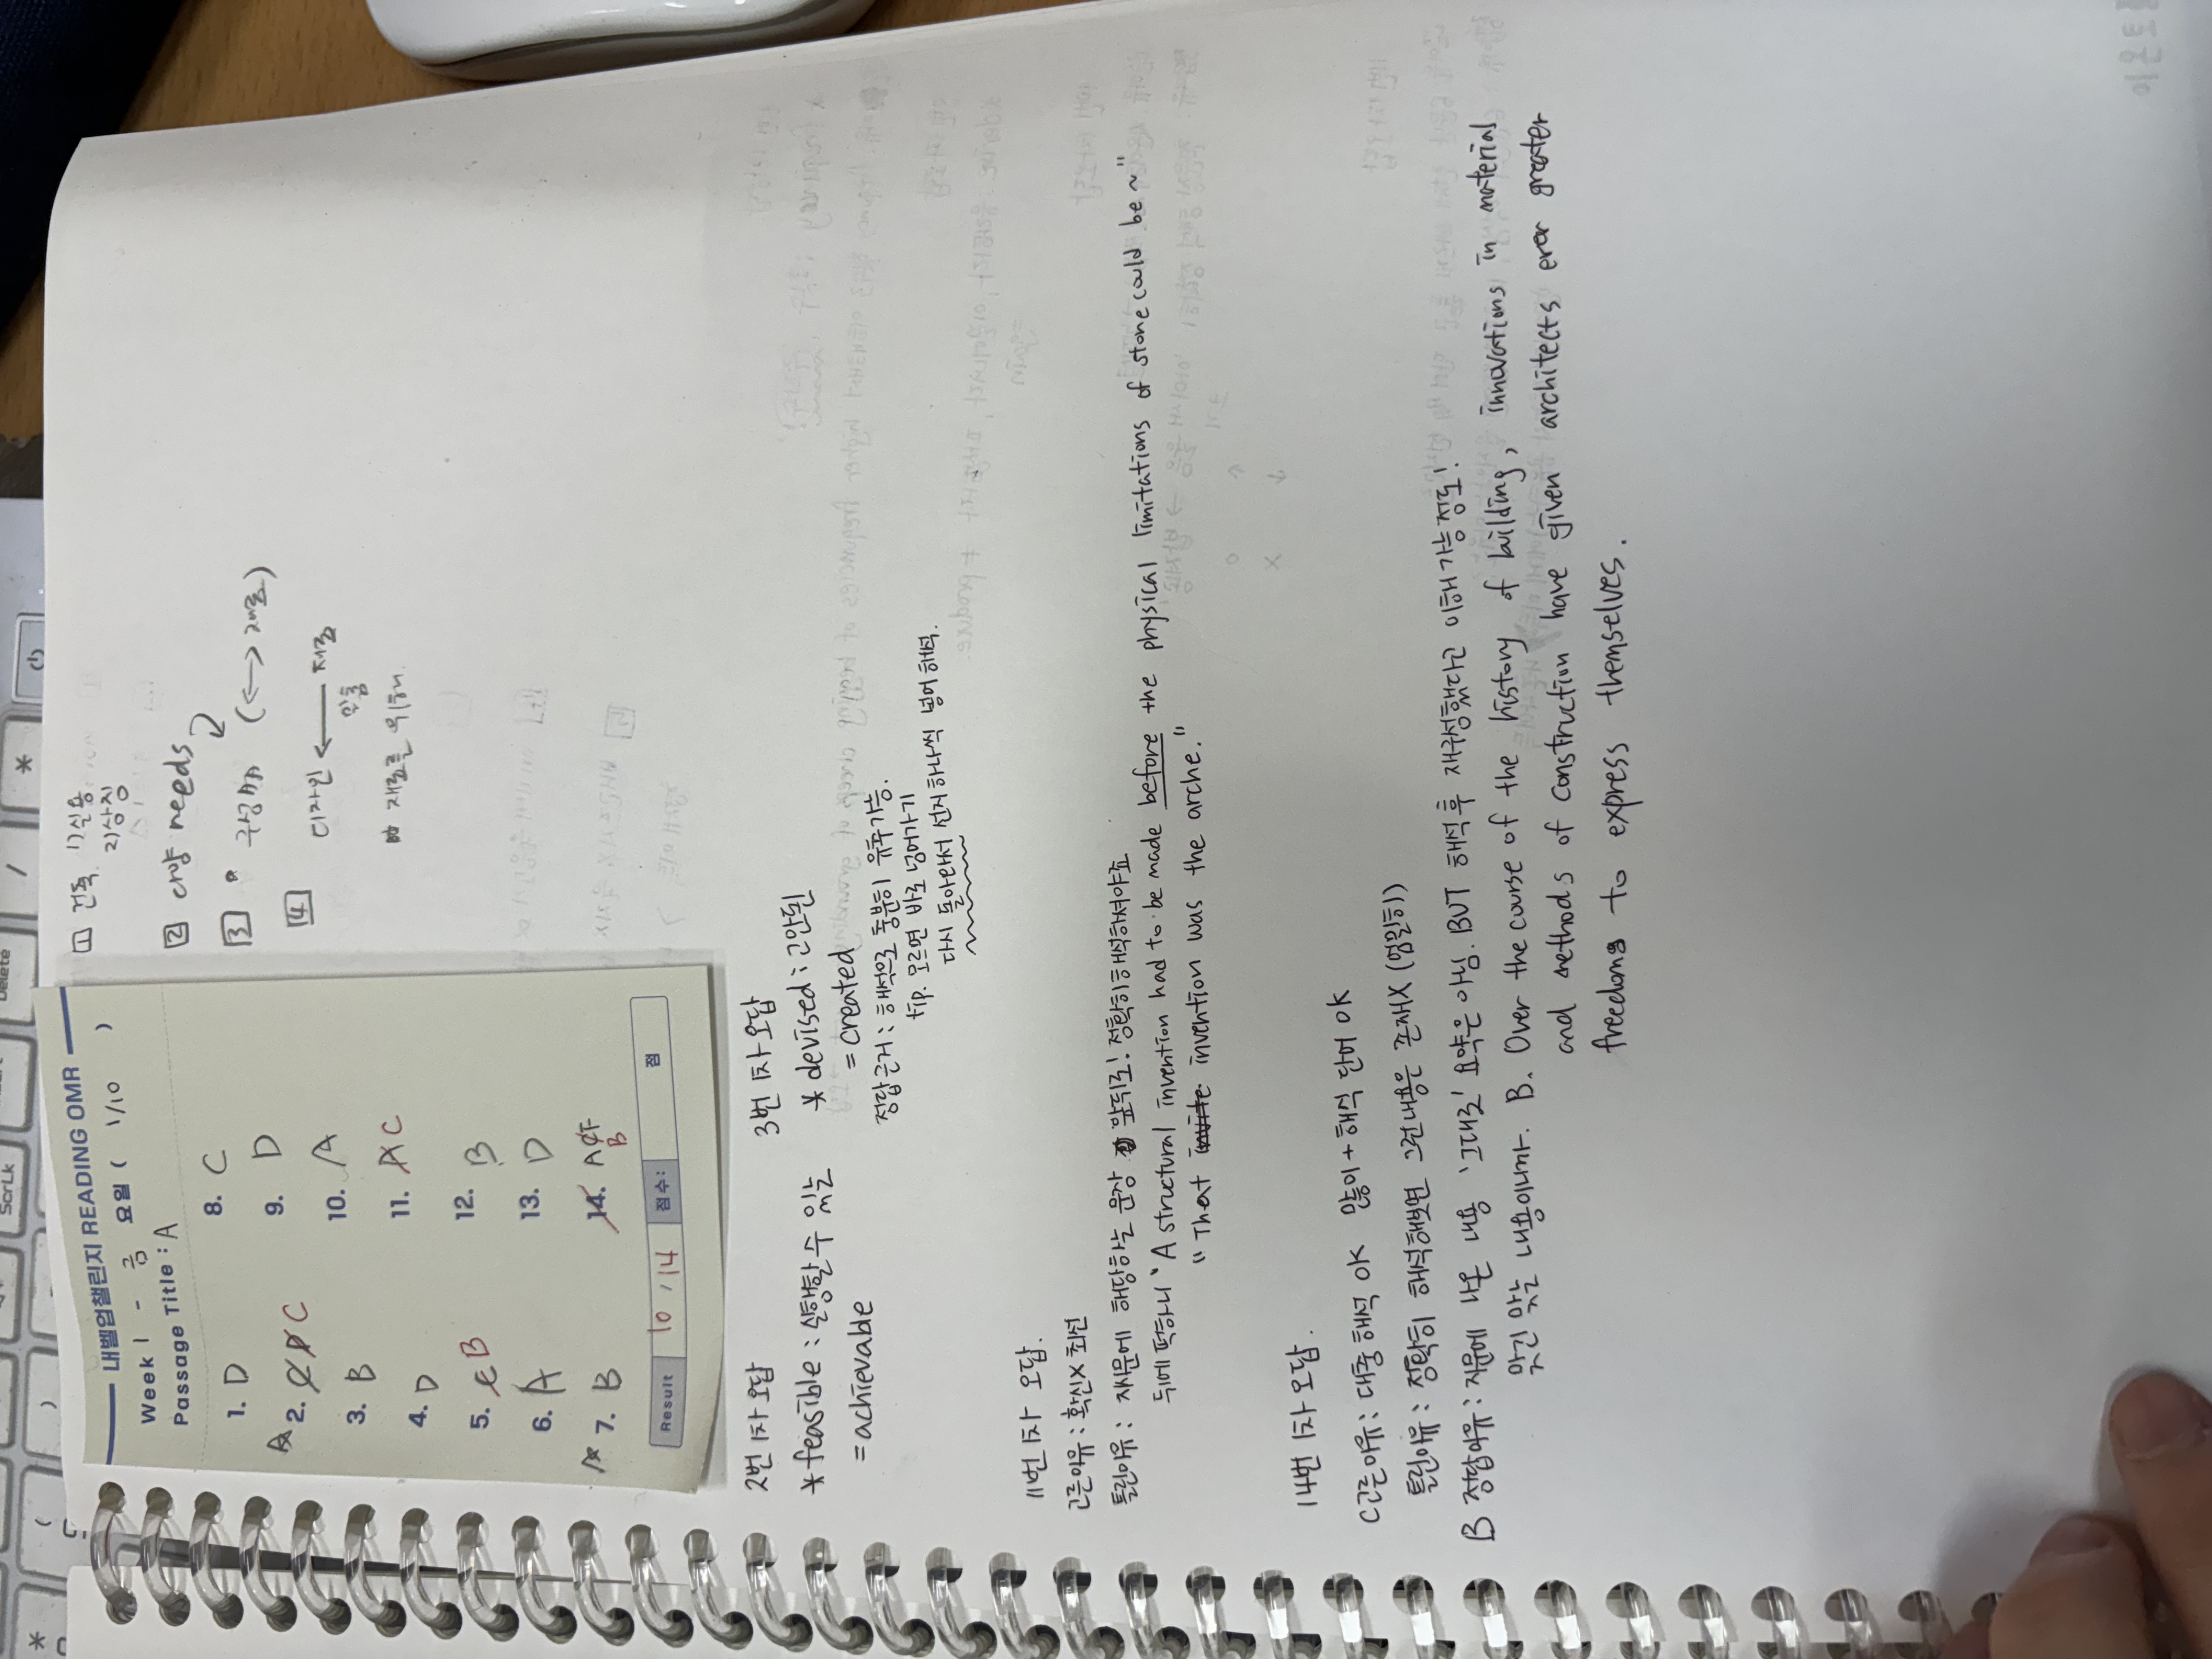 내벨업챌린지 READING OMR
Week 1 - 금 요일 ( 1/10 )
Passage Title : A
1. D
2. C
3. B
4. D
5. B
6. A
7. B
8. C
9. D
10. A
11. C
12. B
13. D
14. B
Result 10 / 14 점수: 점
1 건축. 1) 실용
2) 상징
2 다양 needs
3 (↔ 재료)
4 디자인 ← 재료
맞춤
재료를 위해.
2번 1차 오답
*feasible : 실행할 수 있는
= achievable
3번 1차 오답
* devised : 고안된
= created
정답근거 : 해석으로 충분히 유추가능.
tip. 모르면 바로 넘어가기
다시 돌아와서 선지 하나씩 넣어 해석.
11번 1차 오답.
고른이유 : 확신X 최선
틀린이유 : 제시문에 해당하는 문장 앞뒤로! 정확히 해석하셔야죠
뒤에 떡하니 "A structural invention had to be made before the physical limitations of stone could be ~"
"That invention was the arche."
14번 1차 오답.
C고른이유 : 대충 해석 OK 많이 + 해석 단어 OK
틀린이유 : 정확히 해석해보면 그런 내용은 존재X (엄밀히)
B 정답이유 : 지문에 나온 내용 '그대로' 요약은 아님. BUT 해석 후 재구성했다고 이해 가능 정도!
맞긴 맞는 내용이니까. B. Over the course of the history of building, innovations in material
and methods of construction have given architects ever greater
freedom to express themselves.